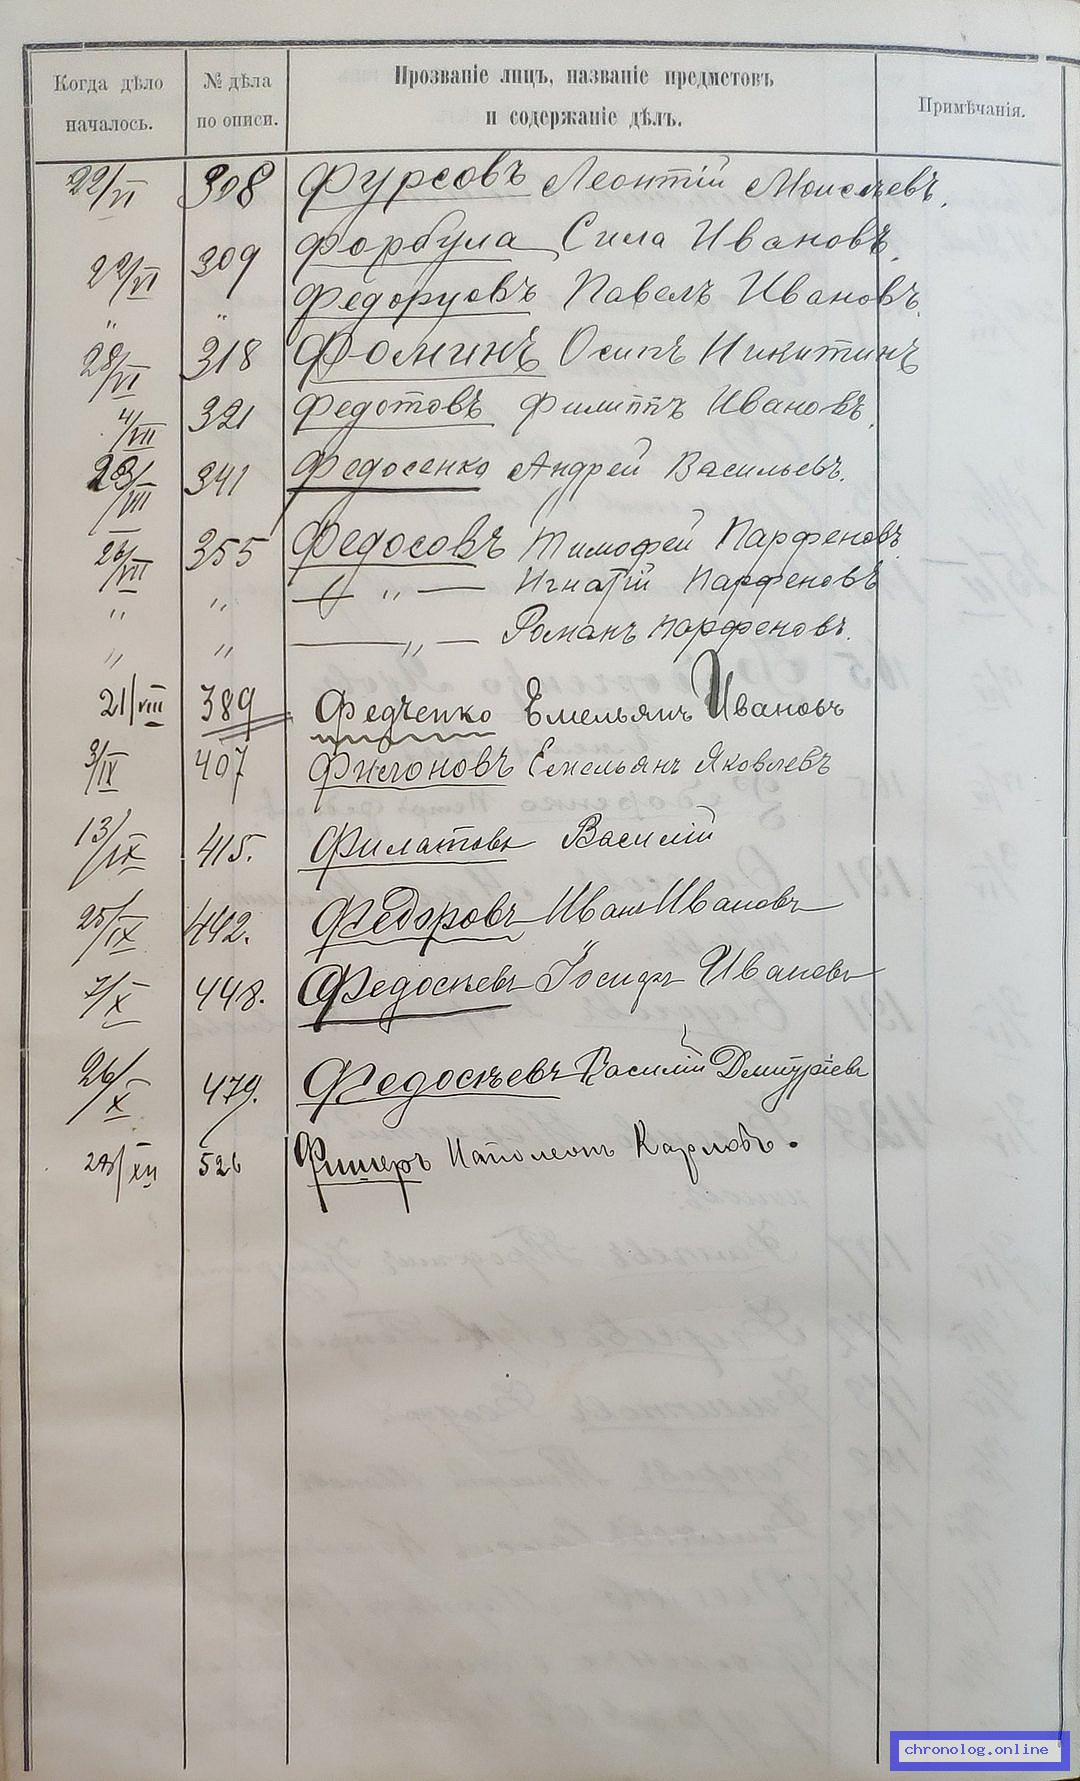 Когда дѣло
началось.
№ дѣла
по описи.
Прозваніе лицъ, названіе предметовъ
и содержаніе дѣлъ.
Примѣчанія.
22/VI 308 Фурсовъ Леонтій Моисѣевъ.
22/VI 309 Форбула Сила Ивановъ.
" " Федоруовъ Павелъ Ивановъ.
28/VI 318 Фоминъ Осипъ Никитинъ
4/VII 321 Федотовъ Филиппъ Ивановъ.
23/VII 341 Федосенко Андрей Васильевъ.
26/VII 355 Федосовъ Тимофей Парфеновъ
" " — " — Игнатій Парфеновъ
" " — " — Романъ Парфеновъ.
21/VIII 389 Федченко Емельянъ Ивановъ
3/IX 407 Филоновъ Емельянъ Яковлевъ
13/IX 415. Филатовъ Василій
25/IX 442. Федоровъ Иван Ивановъ
7/X 448. Федосѣевъ Іосифъ Ивановъ
26/X 479. Федосѣевъ Василій Дмитріевъ
28/XII 526 Фишеръ Наполеонъ Карловъ.
chronolog.online